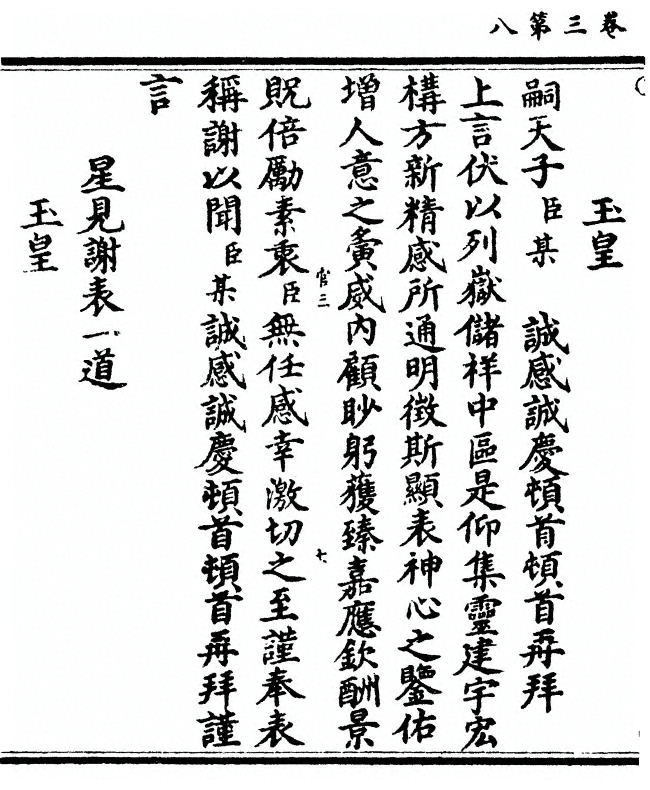 卷三第八
玉皇
嗣天子臣某 誠感誠慶頓首頓首再拜
上言伏以列嶽儲祥中區是仰集靈建宇宏
構方新精感所通明徵斯顯表神心之鑒佑
增人意之夤威內顧眇躬獲臻嘉應欽酬景
官三 七
貺倍勵素衷臣無任感幸激切之至謹奉表
稱謝以聞臣某誠感誠慶頓首頓首再拜謹
言
星見謝表一道
玉皇